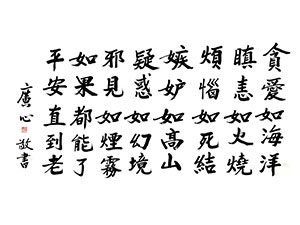 貪愛如海洋
瞋恚如火燒
煩惱如死結
嫉妒如高山
疑惑如幻境
邪見如煙霧
如果都能了
平安直到老
廣心敬書